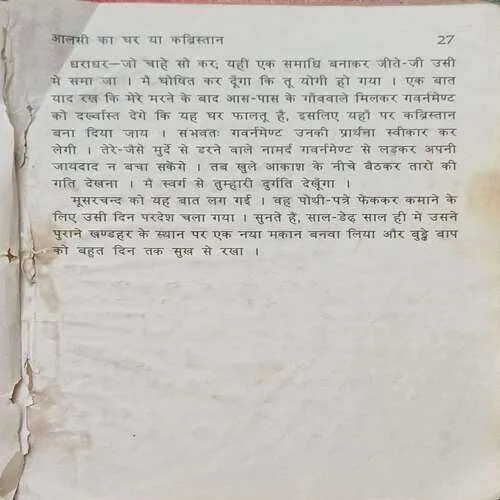 आलसी का घर या कब्रिस्तान 27
धराधर—जो चाहे सो कर; यहीं एक समाधि बनाकर जीते-जी उसी
में समा जा । मैं घोषित कर दूँगा कि तू योगी हो गया । एक बात
याद रख कि मेरे मरने के बाद आस-पास के गाँववाले मिलकर गवर्नमेण्ट
को दर्ख्वास्त देंगे कि यह घर फालतू है, इसलिए यहाँ पर कब्रिस्तान
बना दिया जाय । संभवतः गवर्नमेण्ट उनकी प्रार्थना स्वीकार कर
लेगी । तेरे-जैसे मुर्दे से डरने वाले नामर्द गवर्नमेण्ट से लड़कर अपनी
जायदाद न बचा सकेंगे । तब खुले आकाश के नीचे बैठकर तारों की
गति देखना । मैं स्वर्ग से तुम्हारी दुर्गति देखूँगा ।
मूसरचन्द को यह बात लग गई । वह पोथी-पत्रे फेंककर कमाने के
लिए उसी दिन परदेश चला गया । सुनते हैं, साल-डेढ़ साल ही में उसने
पुराने खण्डहर के स्थान पर एक नया मकान बनवा लिया और बुड्ढे बाप
को बहुत दिन तक सुख से रखा ।